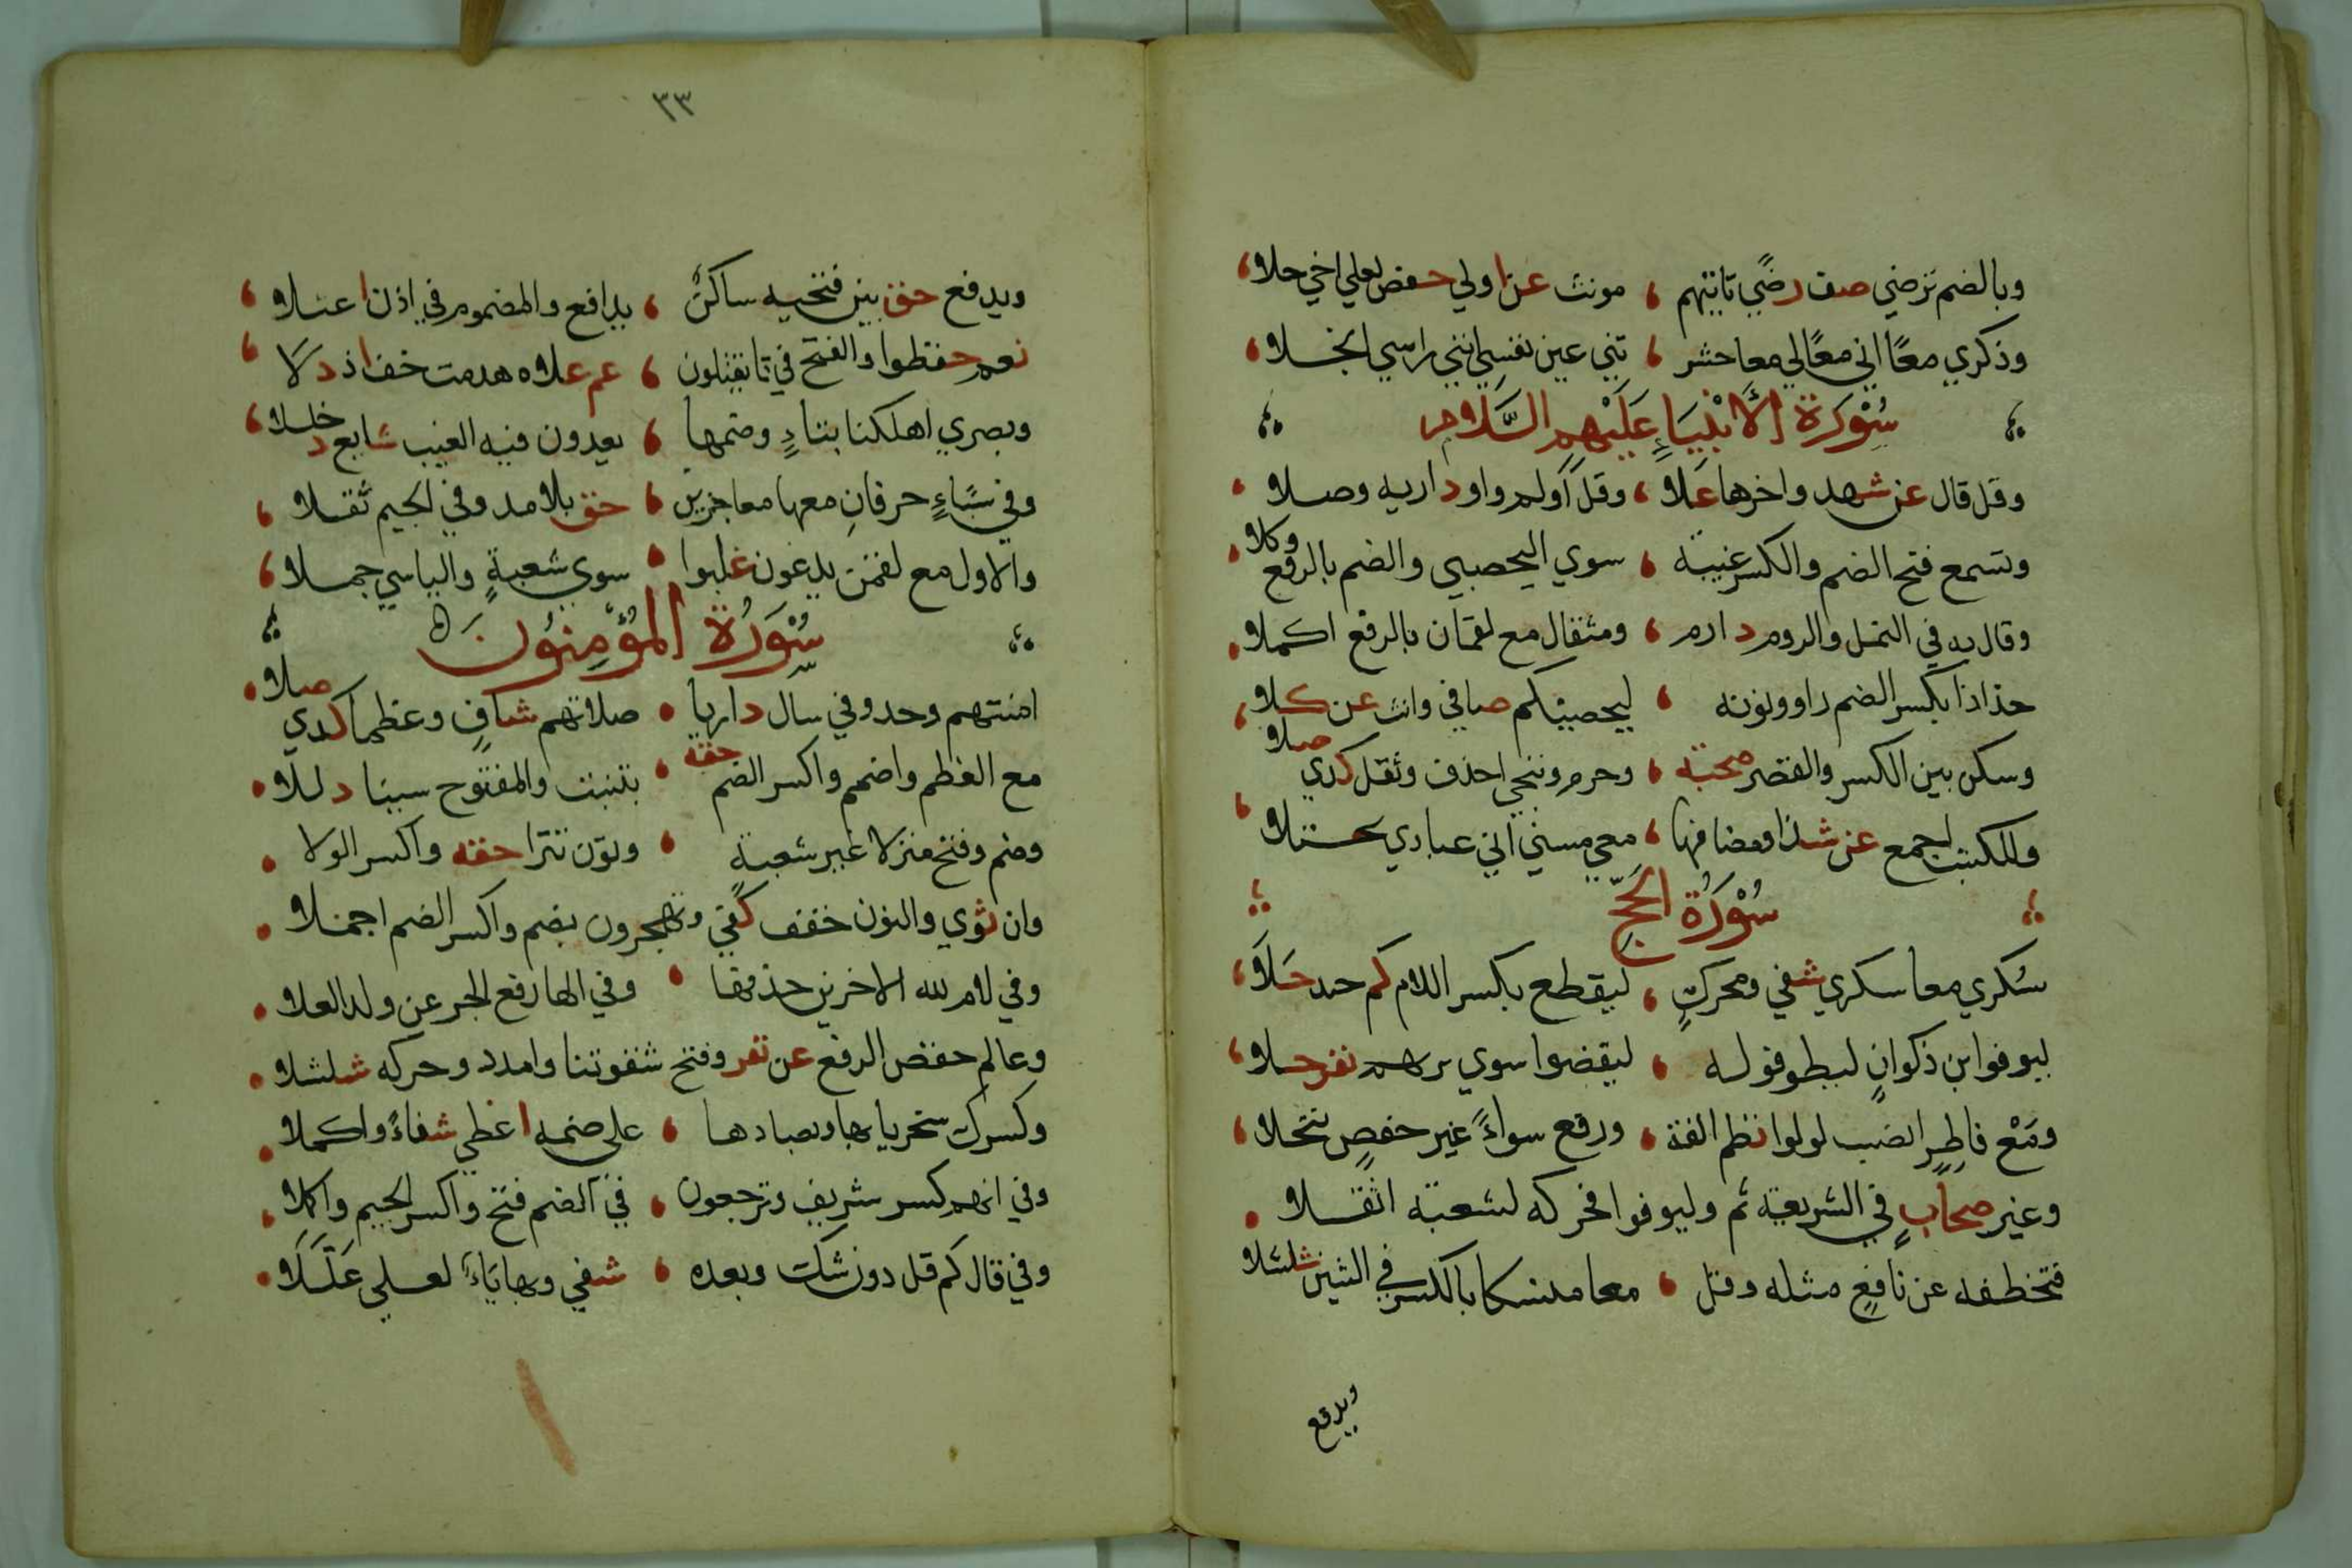 وبالضم ترضي صف رضًي تاتيهم ، مونث عن اولي حفص لعلي اخي حلا
وذكري معًا اني معًا لي معا حشر ، تني عين نفسي انني راسي انجلا
سُوْرَة الأَنْبِيَاءِ عَلَيْهِم السَّلَام
وقل قال عن شهد واخرها عَلَا ، وقل اَولم واو داريه وصلا
وتسمع فتح الضم والكسر غيبة ، سوي اليحصبي والضم بالرفع وكلا
وقال به في النمل والروم دارم ، ومثقال مع لقمان بالرفع اكملا
جذاذا بكسر الضم راو ونونه ، ليحصنكم صافي وانث عن كلا
وسكن بين الكسر والقصر صحبة ، وحرم وننجي احذف وثقل كدي صلا
وللكتب اجمع عن شذا ومضافها ، معي مسني اني عبادي تجتلا
سُوْرَةُ الحَجّ
سُكري معا سكري شفي ومحركٍ ، ليقطع بكسر اللام كم جيد حَلَا
ليوفوا ابن ذكوانٍ ليطوفوا له ، ليقضوا سوي بزهم نفر حلا
ومَعْ فاطِرٍ انصب لولوا نظم الفة ، ورفع سواءً غير حفصٍ تنخلا
وغير صحابٍ في الشريعة ثم وليوفوا فحركه لشعبة اثقلا
فتخطفه عن نافعٍ مثله وقل ، معا منسكا بالكسر في الشين شلشلا
ويدفع
٣٣
ويدفع حق بين فتحيه ساكنٌ ، يدافع والمضموم في اذن اعتلا
نعم حفظوا والفتح في تا يقتلون ، عم علاه هدمت خف اذ دلَا
وبصري اهلكنا بتاءٍ وضمها ، يعدون فيه الغيب شايع دخللا
وفي سَبَاءٍ حرفانِ معها معاجزين ، حق بلا مد وفي الجيم ثقلا
والاول مع لقمن يدعون غلبوا ، سوي شعبةٍ واليا بيتي جملا
سُوْرَةُ المُؤْمِنُونَ
امنتهم وحد وفي سال داريا ، صلاتهم شافٍ وعظما كدي صلا
مع العظم واضمم واكسر الضم حقه ، بتنبت والمفتوح سينا دللا
وضم وفتح منزلا غير شعبةٍ ، ونون تترا حقه واكسر الولا
وان ثوي والنون خفف كفي وتهجرون بضم واكسر الضم اجملا
وفي لام لله الاخرين حذفها ، وفي الها رفع الجر عن ولد العلا
وعالم خفض الرفع عن نفر وفتح شقوتنا وامدد وحركه شلشلا
وكسرك سخريا بها وبصادها ، علي ضمه اعطي شفاءً واكملا
وفي انهم كسر شريف وترجعون ، في الضم فتح واكسر الجيم واكملا
وفي قال كم قل دون شك وبعده ، شفي وبها ياءٌ لعلي عَلَّلَا